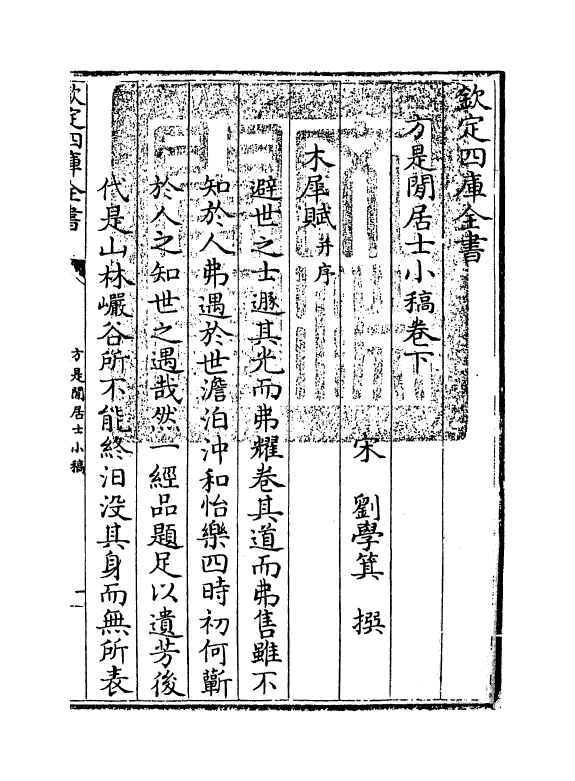 欽定四庫全書
方是閒居士小稿卷下
宋 劉學箕 撰
木犀賦并序
避世之士遯其光而弗耀卷其道而弗售雖不
知於人弗遇於世澹泊沖和怡樂四時初何蘄
於人之知世之遇哉然一經品題足以遺芳後
代是山林巖谷所不能終汨没其身而無所表
欽定四庫全書
方是閒居士小稿
一